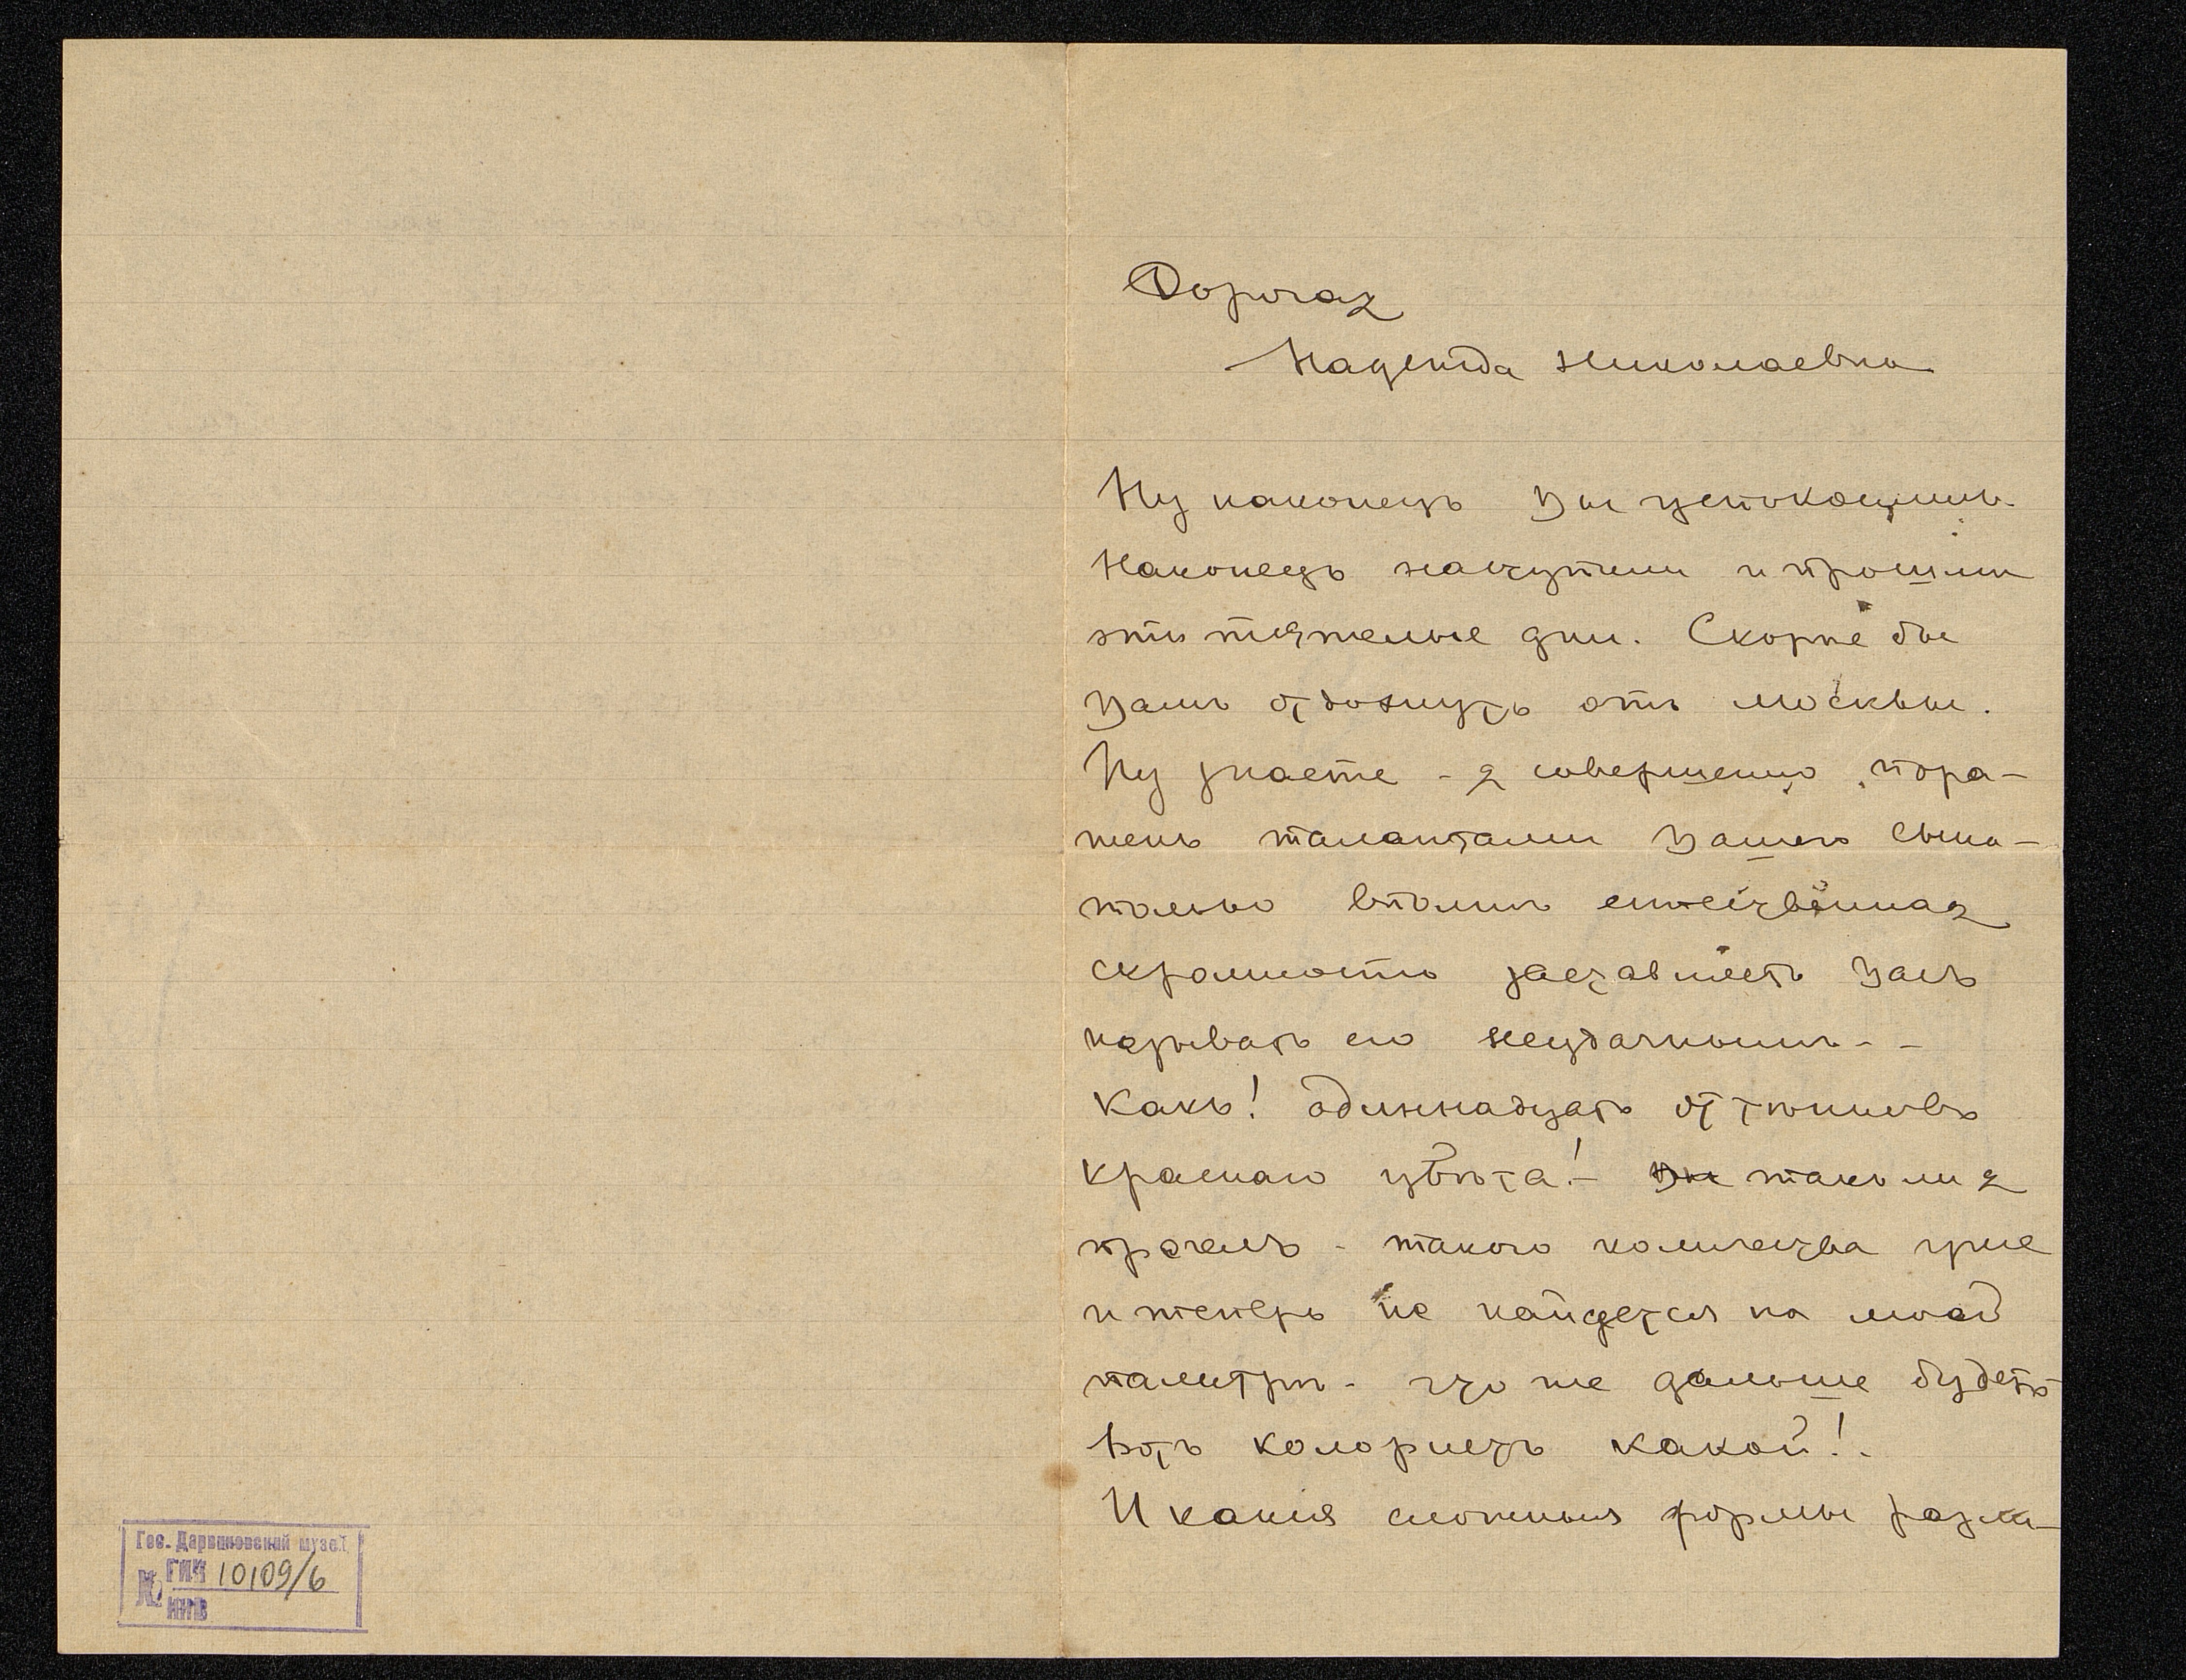 Дорогая
Надежда Николаевна
Ну наконецъ Вы успокоились.
Наконецъ наступили и прошли
эти тяжелые дни. Скорѣе бы
Вамъ отдохнуть отъ Москвы.
Ну знаете - я совершенно пора-
женъ талантами Вашего сына-
только вполнѣ естественная
скромность заставляетъ Васъ
называть его неудачнымъ - -
Какъ! одиннадцать оттѣнковъ
краснаго цвѣта! - такъ ли я
прочелъ - такого количества уже
и теперь не найдется на моей
палитрѣ - что же дальше будетъ
Вотъ колористъ какой!.
И какия сложныя формы разли-
Гос. Дарвиновский музей
№ ГИК 10109/6
ИНВ